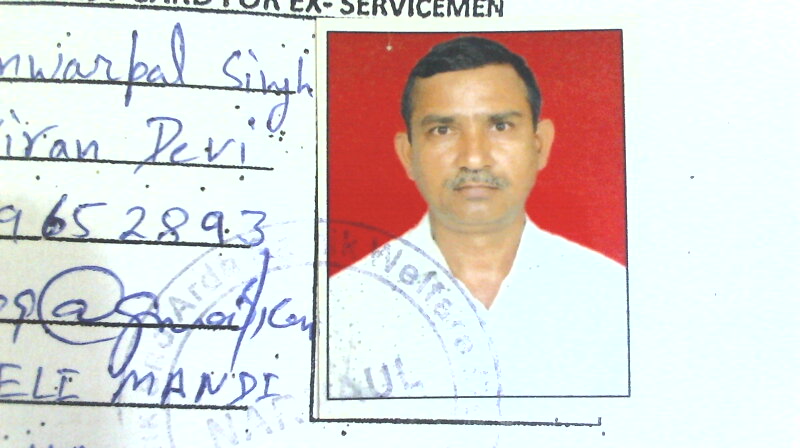 CARD FOR EX- SERVICEMEN
nwarpal Singh
iran Devi
9652893
@gmail.com
ELI MANDI
Welfare
NARNAUL